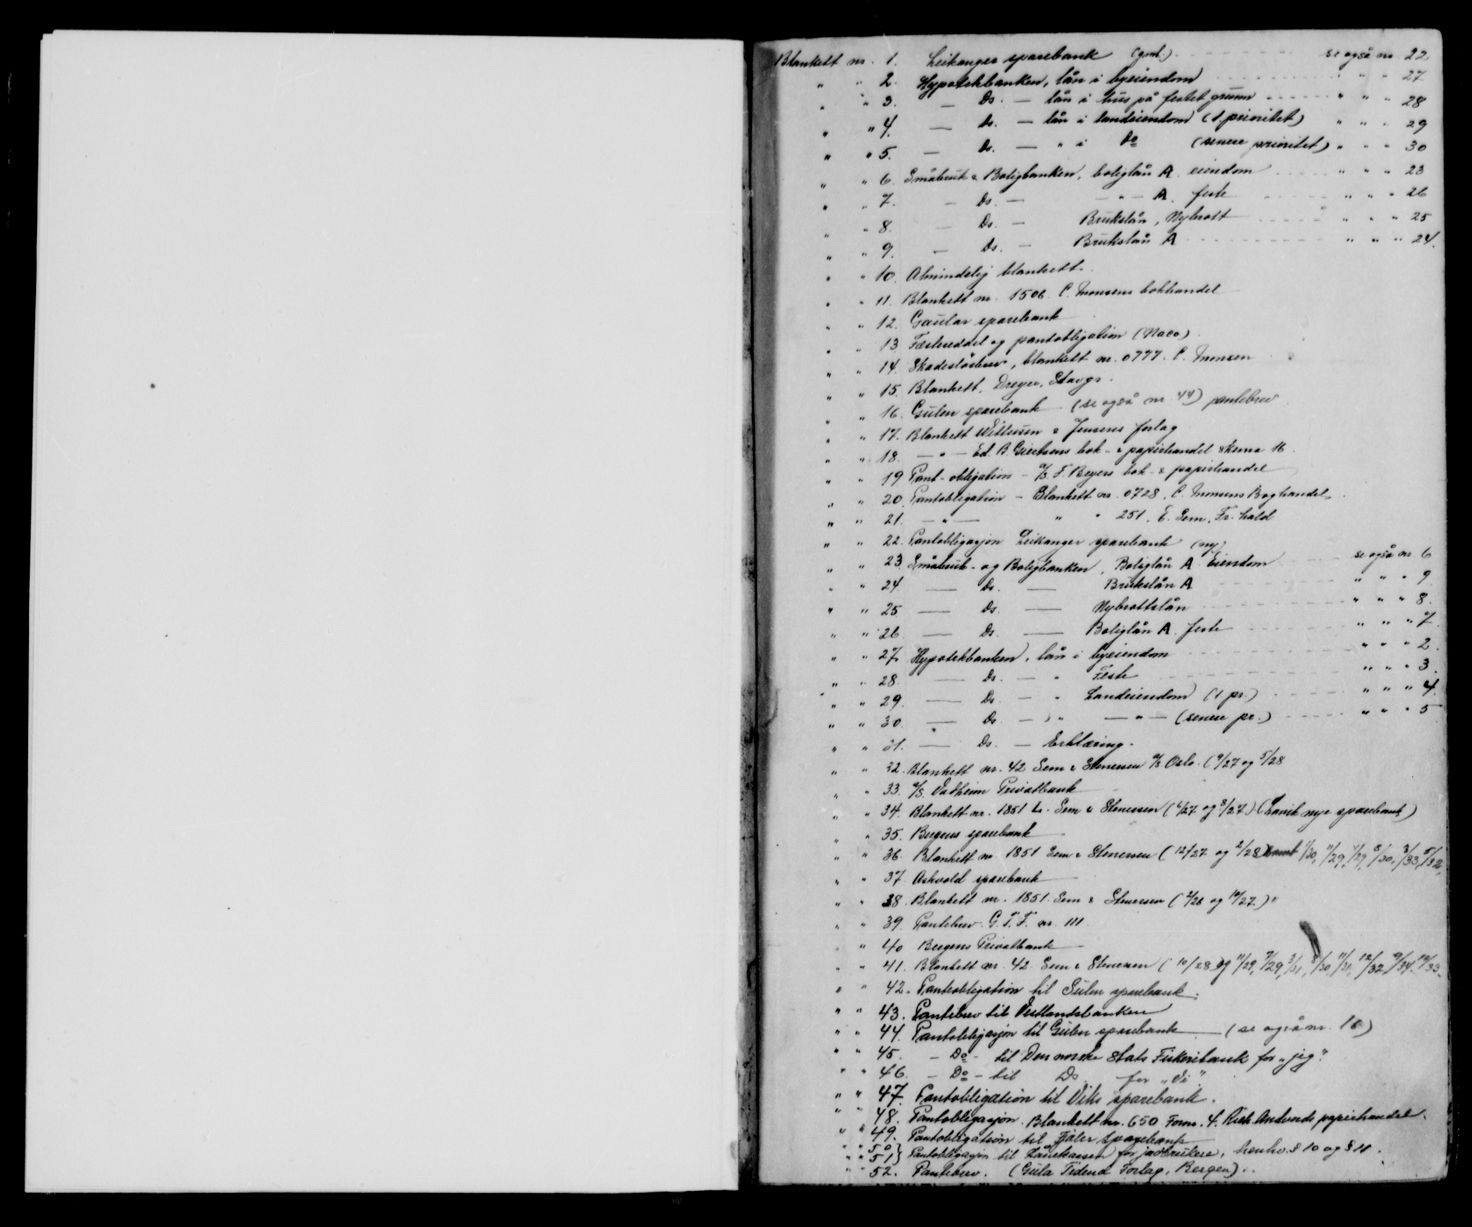 Blankett nr. 1. Leikanger sparebank (gml.) se også nr 22
" " 2. Hypotekbanken, lån i byeiendom " " " 27
" " 3. — Do. — lån i hus på festet grunn " " " 28
" " 4. — Do. — lån i landeiendom (1 prioritet) " " " 29
" " 5. — Do. — " i Do (senere prioritet) " " " 30
" " 6. Småbruk & Boligbanken, boliglån A eiendom " " " 23
" " 7. — Do. — — " — A. feste " " " 26
" " 8. — Do. — Brukslån, Nybrott " " " 25
" " 9. — Do. — Brukslån A " " " 24.
" " 10. Almindelig blankett.
" " 11. Blankett nr. 1506. C. Monsens bokhandel
" " 12. Gaular sparebank
" " 13 Festeseddel og pantobligation (Naco)
" " 14. Skadesløsbrev, blankett nr. 0777. C. Monsen
" " 15. Blankett. Dreyer, Stavgr.
" " 16. Gulen sparebank (se også nr 44) pantebrev
" " 17. Blankett Wittusen & Jensens forlag
" " 18. — " — Ed. B. Giertsens bok- & papirhandel skema 16
" " 19 Pant-obligation - A/S F. Beyers bok- & papirhandel
" " 20. Pantobligation - Blankett nr. 0728. C. Monsens Boghandel.
" " 21. — " — " " 251. E. Sem, Fr.hald
" " 22. Pantobligasjon Leikanger sparebank (ny)
" " 23. Småbruk- og Boligbanken, Boliglån A Eiendom se også nr 6
" " 24 — Do. — Brukslån A " " " 9
" " 25 — Do. — Nybrottslån " " " 8.
" " 26 — Do. — Boliglån A. feste " " " 7.
" " 27. Hypotekbanken, lån i byeiendom " " " 2.
" " 28 — Do. — " Feste " " " 3.
" " 29. — Do. — " Landeiendom (1 pr.) " " " 4.
" " 30 — Do. — " — " — (senere pr.) " " " 5
" " 31. — Do. — Erklæring.
" " 32. Blankett nr. 42 Sem & Stenersen A/S Oslo. (9/27 og 5/28
" " 33. A/S Vadheim Privatbank
" " 34. Blankett nr. 1851 b. Sem & Stenersen (1/27 og 8/27) (Lavik nye sparebank)
" " 35. Bergens sparebank
" " 36 Blankett nr. 1851 Sem & Stenersen (12/27 og 2/28) samt
" " 37. Askvold sparebank
" " 38. Blankett nr. 1851. Sem & Stenersen (2/28 og 10/27)
" " 39. Pantebrev. G.T.F. nr. 111.
" " 40 Bergens Privatbank
" " 41. Blankett nr. 42. Sem & Stenersen (10/28 og 11/29,
" " 42. Pantobligation til Gulen sparebank.
" " 43. Pantebrev til Vestlandsbanken
" " 44. Pantobligasjon til Gulen sparebank (se også nr. 16)
" " 45. - Do - til Den norske Stats Fiskeribank for "jeg".
" " 46. - Do - til Do for "Vi"
" " 47. Pantobligation til Viks sparebank.
" " 48. Pantobligasjon. Blankett nr. 650 Form. 4. papirhandel.
" " 49. Pantobligation til Fjaler sparebank
" " 50 } Pantobligasjon til Lånekassen for jordbrukere, henho. § 10 og § 11.
" " 51 }
" " 52. Pantebrev. (Gula Tidend Forlag, Bergen).